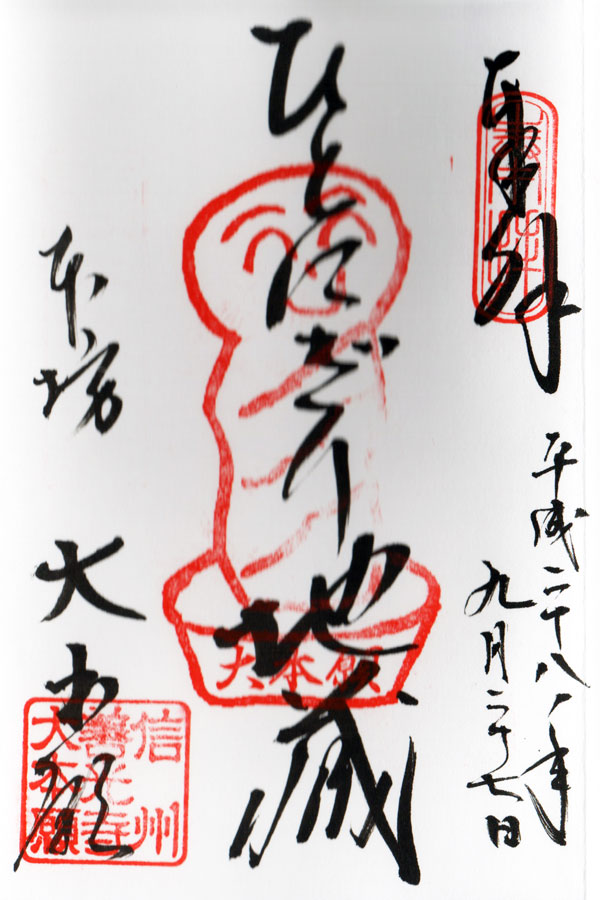 奉拝
平成二十八年
九月二十七日
ひとにぎり地蔵
大本願
本坊
大本願
信州
善光寺
大本願